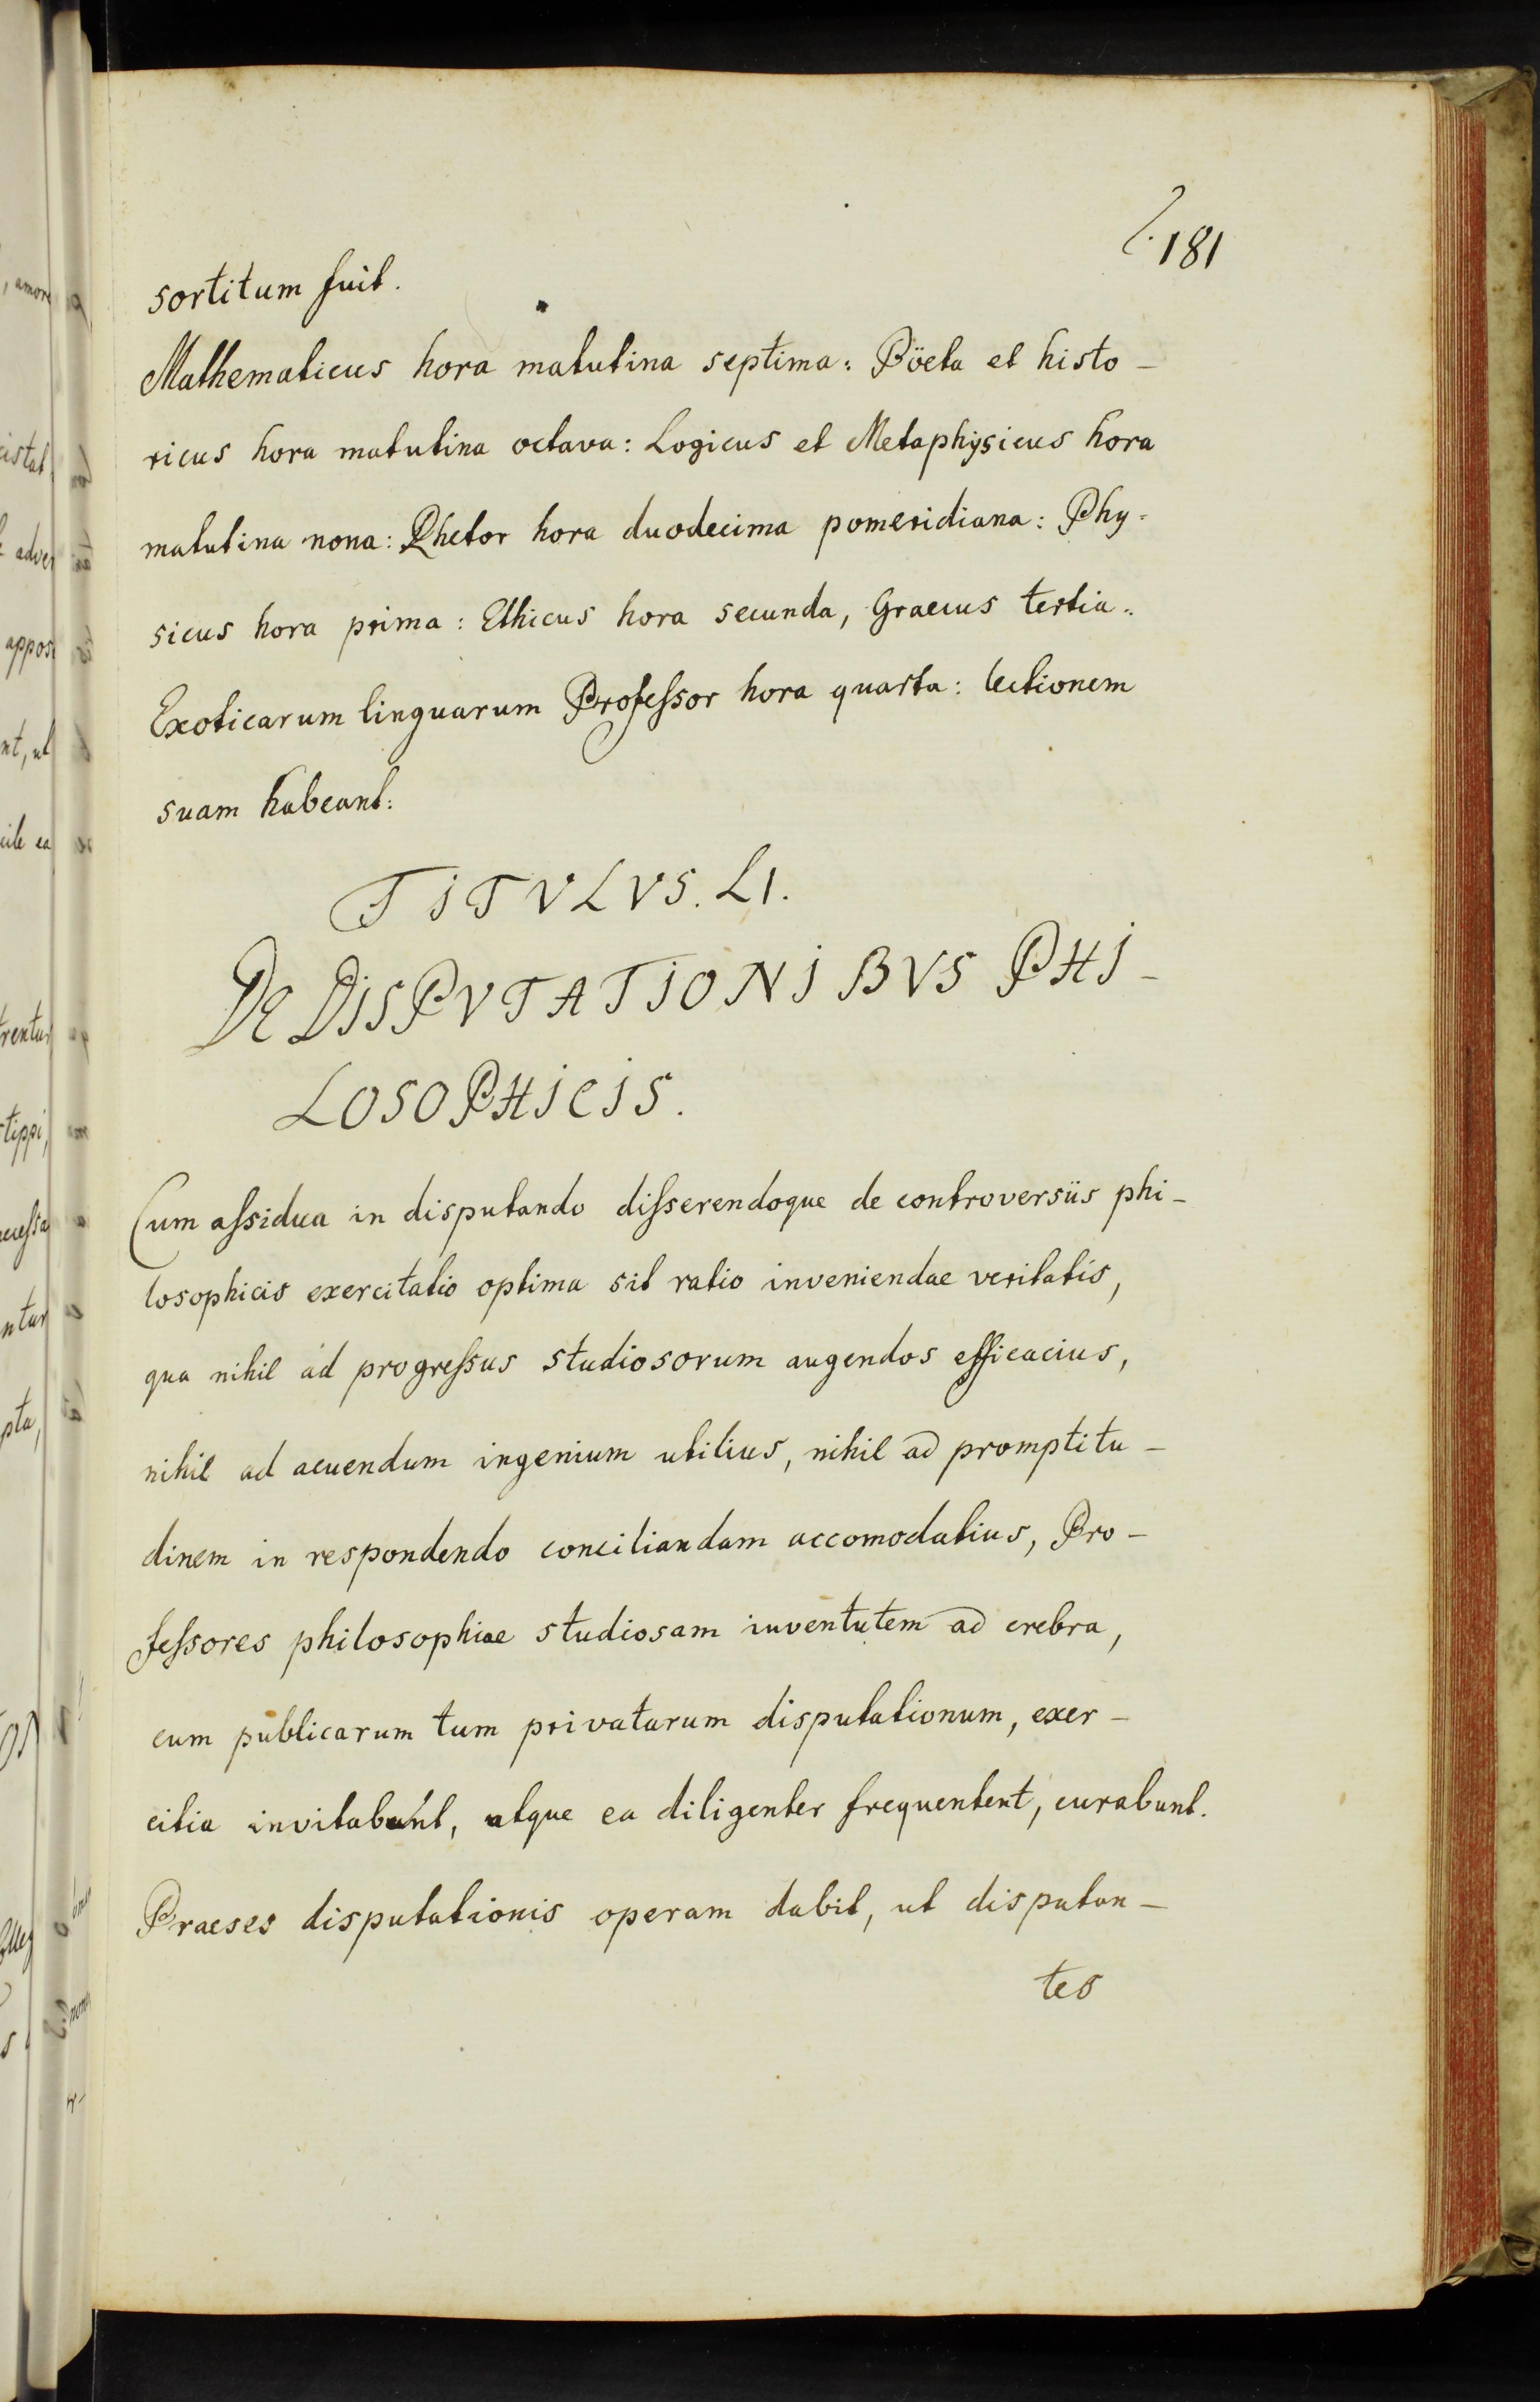 181
sortitum fuit.
Mathematicus hora matutina septima: Pöeta et histo-
ricus hora matutina octava: Logicus et Metaphÿsicus hora
matutina nona: Rhetor hora duodecima pomeridiana: Phy-
sicus hora prima: Ethicus hora secunda, Graecus tertia:
Exoticarum linguarum Professor hora quarta: lectionem
suam habeant:
TITVLVS. LI.
DE DISPVTATIONIBVS PHI-
LOSOPHICIS.
Cum assidua in disputando disserendoque de controversiis phi-
losophicis exercitatio optima sit ratio inveniendae veritatis,
qua nihil ad progressus studiosorum augendos efficacius,
nihil ad acuendum ingenium utilius, nihil ad promptitu-
dinem in respondendo conciliandam accomodatius, Pro-
fessores philosophiae studiosam iuventutem ad crebra,
cum publicarum tum privatarum disputationum, exer-
citia invitabunt, atque ea diligenter frequentent, curabunt.
Praeses disputationis operam dabit, ut disputan-
tes